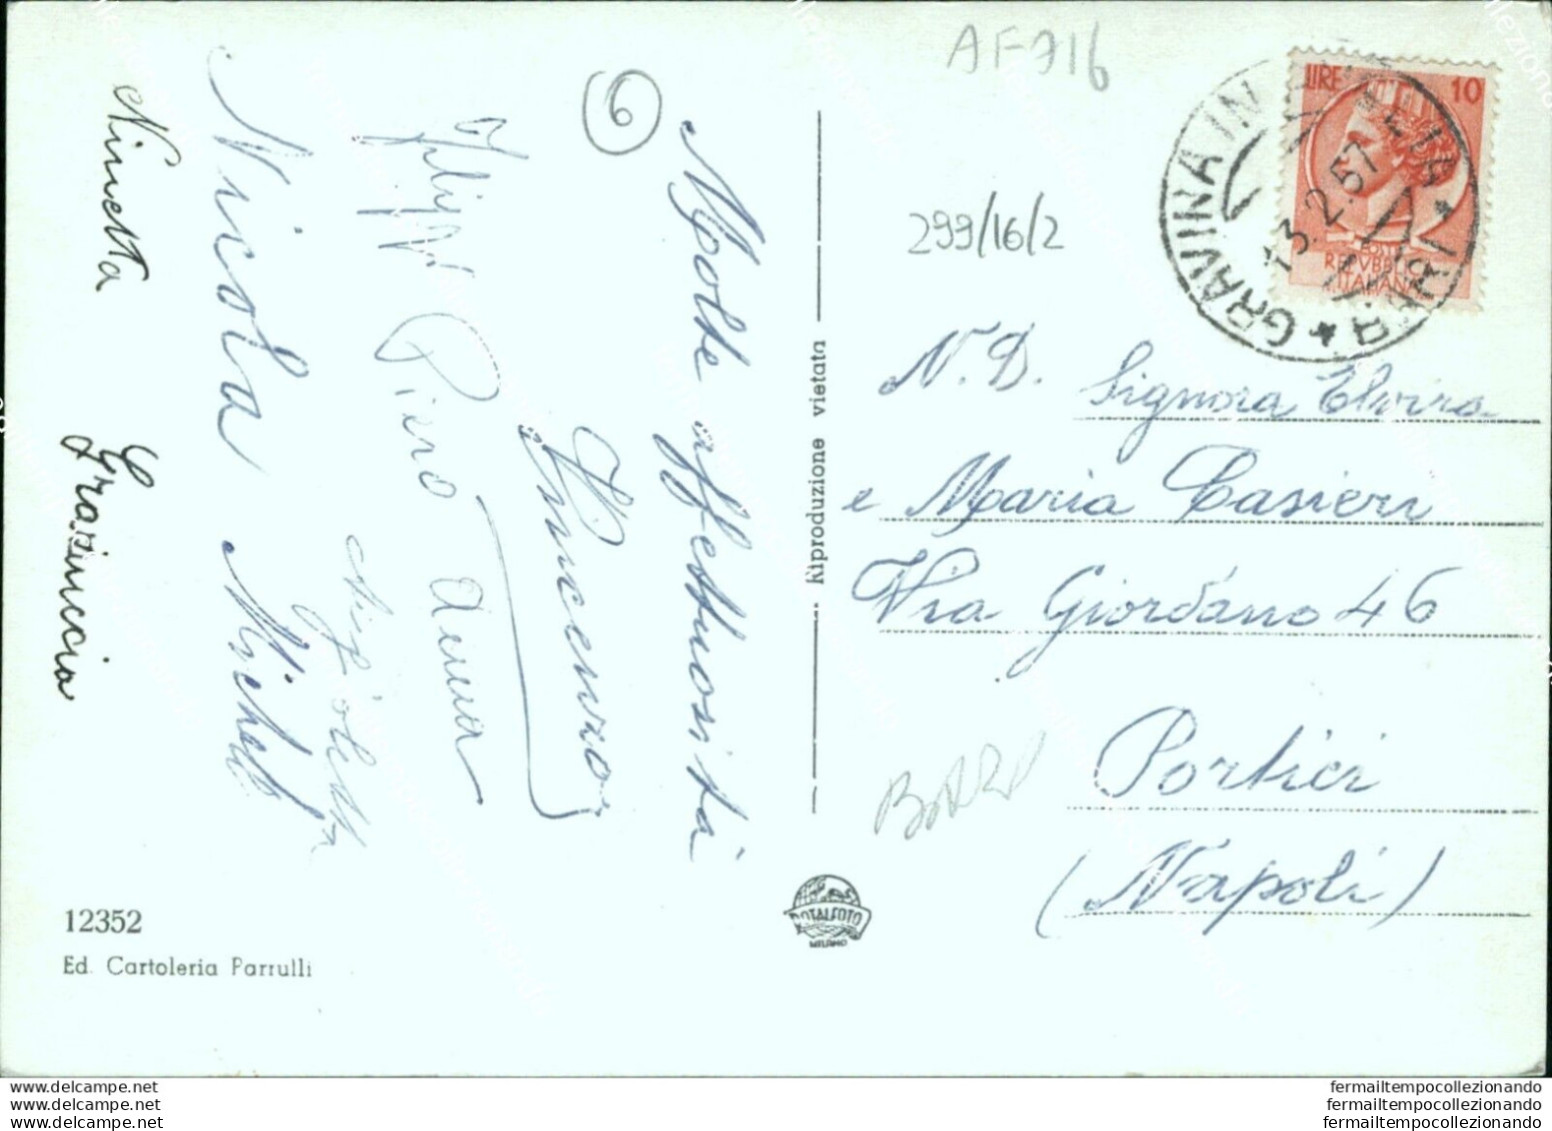 AF716
6
299/16/2
LIRE 10
POSTE
REPUBBLICA
ITALIANA
GRAVINA IN PUGLIA
13.2.57
* BARI *
Molte affettuosità
Vincenzo
Anna
Piero
Nicola Michele
Ninetta
Grazinccia
Riproduzione vietata
N.D. Signora Elvira
e Maria Casieri
Via Giordano 46
Portici
(Napoli)
ROTALFOTO
MILANO
12352
Ed. Cartoleria Parrulli
www.delcampe.net
www.delcampe.net
www.delcampe.net
fermailtempocollezionando
fermailtempocollezionando
fermailtempocollezionando